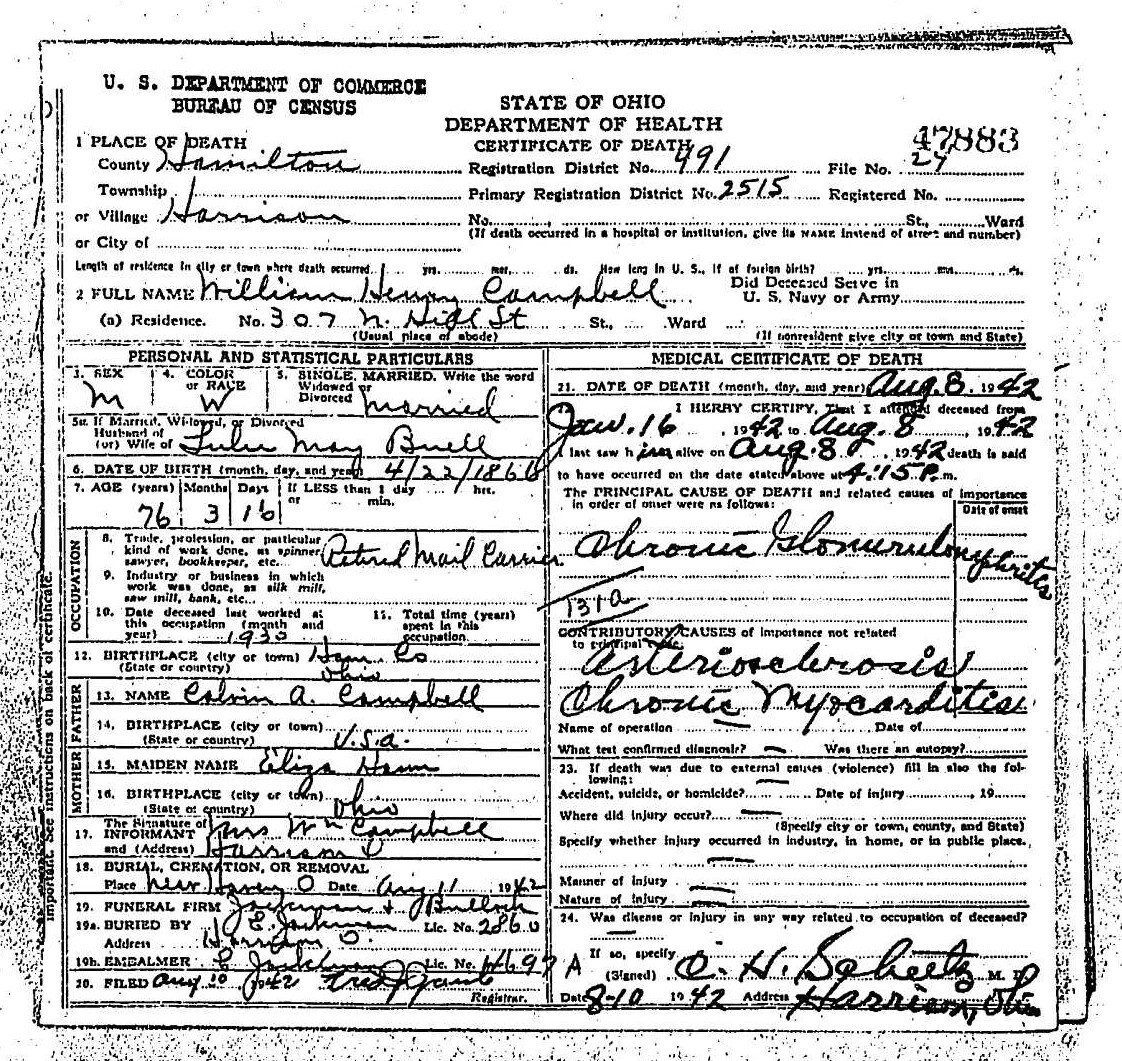 U. S. DEPARTMENT OF COMMERCE
BUREAU OF CENSUS
STATE OF OHIO
DEPARTMENT OF HEALTH
CERTIFICATE OF DEATH
47883
1 PLACE OF DEATH
County Hamilton Registration District No. 491 File No. 27
Township Primary Registration District No. 2515 Registered No.
or Village Harrison No. St., Ward
or City of (If death occurred in a hospital or institution, give its NAME instead of street and number)
Length of residence in city or town where death occurred yrs. mos. ds. How long in U. S., if of foreign birth? yrs. mos. ds.
2 FULL NAME William Henry Campbell Did Deceased Serve in U. S. Navy or Army
(a) Residence. No. 307 N. St St., Ward
(Usual place of abode) (If nonresident give city or town and State)
PERSONAL AND STATISTICAL PARTICULARS
3. SEX M 4. COLOR or RACE W 5. SINGLE, MARRIED, Write the word Widowed or Divorced Married
5a. If Married, Widowed, or Divorced
Husband of
(or) Wife of Lulu May Buell
6. DATE OF BIRTH (month, day, and year) 4/22/1866
7. AGE (years) Months Days If LESS than 1 day hrs.
or min.
76 3 16
OCCUPATION
8. Trade, profession, or particular
kind of work done, as spinner, Retired Mail Carrier
sawyer, bookkeeper, etc.
9. Industry or business in which
work was done, as silk mill,
saw mill, bank, etc.
10. Date deceased last worked at
this occupation (month and
year) 1930
11. Total time (years)
spent in this
occupation
12. BIRTHPLACE (city or town) Ham. Co
(State or country) Ohio
FATHER
13. NAME Calvin A. Campbell
14. BIRTHPLACE (city or town)
(State or country) U.S.a.
MOTHER
15. MAIDEN NAME Eliza
16. BIRTHPLACE (city or town)
(State or country) Ohio
17. The Signature of
INFORMANT Mrs Wm Campbell
and (Address) Harrison O
18. BURIAL, CREMATION, OR REMOVAL
Place New Haven O Date Aug 11 1942
19. FUNERAL FIRM Jackman & Bullock
19a. BURIED BY E. Jackman Lic. No. 2860
Address Harrison O.
19b. EMBALMER E Jackman Lic. No. 4697 A
20. FILED Aug 10 1942
Registrar.
Important. See instructions on back of certificate.
MEDICAL CERTIFICATE OF DEATH
21. DATE OF DEATH (month, day, and year) Aug. 8. 1942
I HERBY CERTIFY, That I attended deceased from
Jan. 16, 1942 to Aug. 8, 1942
I last saw him alive on Aug. 8, 1942 death is said
to have occurred on the date stated above at 4:15 P. m.
The PRINCIPAL CAUSE OF DEATH and related causes of importance
in order of onset were as follows: Date of onset
Chronic Glomerulonephritis
131a
CONTRIBUTORY CAUSES of importance not related
to principal cause:
Arteriosclerosis
Chronic Myocarditis
Name of operation Date of
What test confirmed diagnosis? Was there an autopsy?
23. If death was due to external causes (violence) fill in also the fol-
lowing:
Accident, suicide, or homicide? Date of injury, 19
Where did injury occur?
(Specify city or town, county, and State)
Specify whether injury occurred in industry, in home, or in public place.
Manner of injury
Nature of injury
24. Was disease or injury in any way related to occupation of deceased?
If so, specify
(Signed) O. H. M. D.
Date 8-10 1942 Address Harrison, Ohio